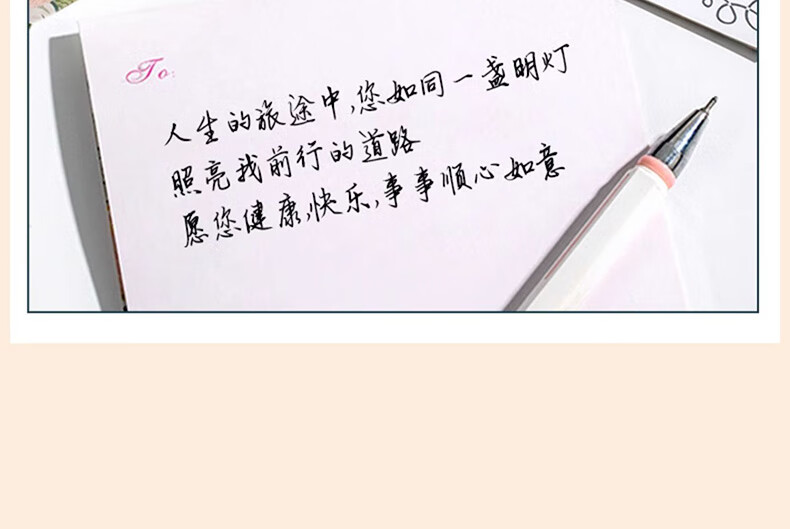 To:
人生的旅途中,您如同一盏明灯
照亮我前行的道路
愿您健康,快乐,事事顺心如意